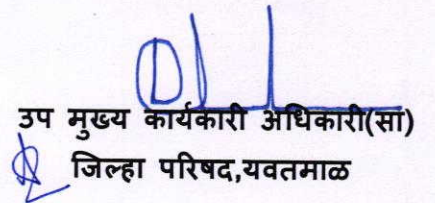 उप मुख्य कार्यकारी अधिकारी(सा)
जिल्हा परिषद,यवतमाळ